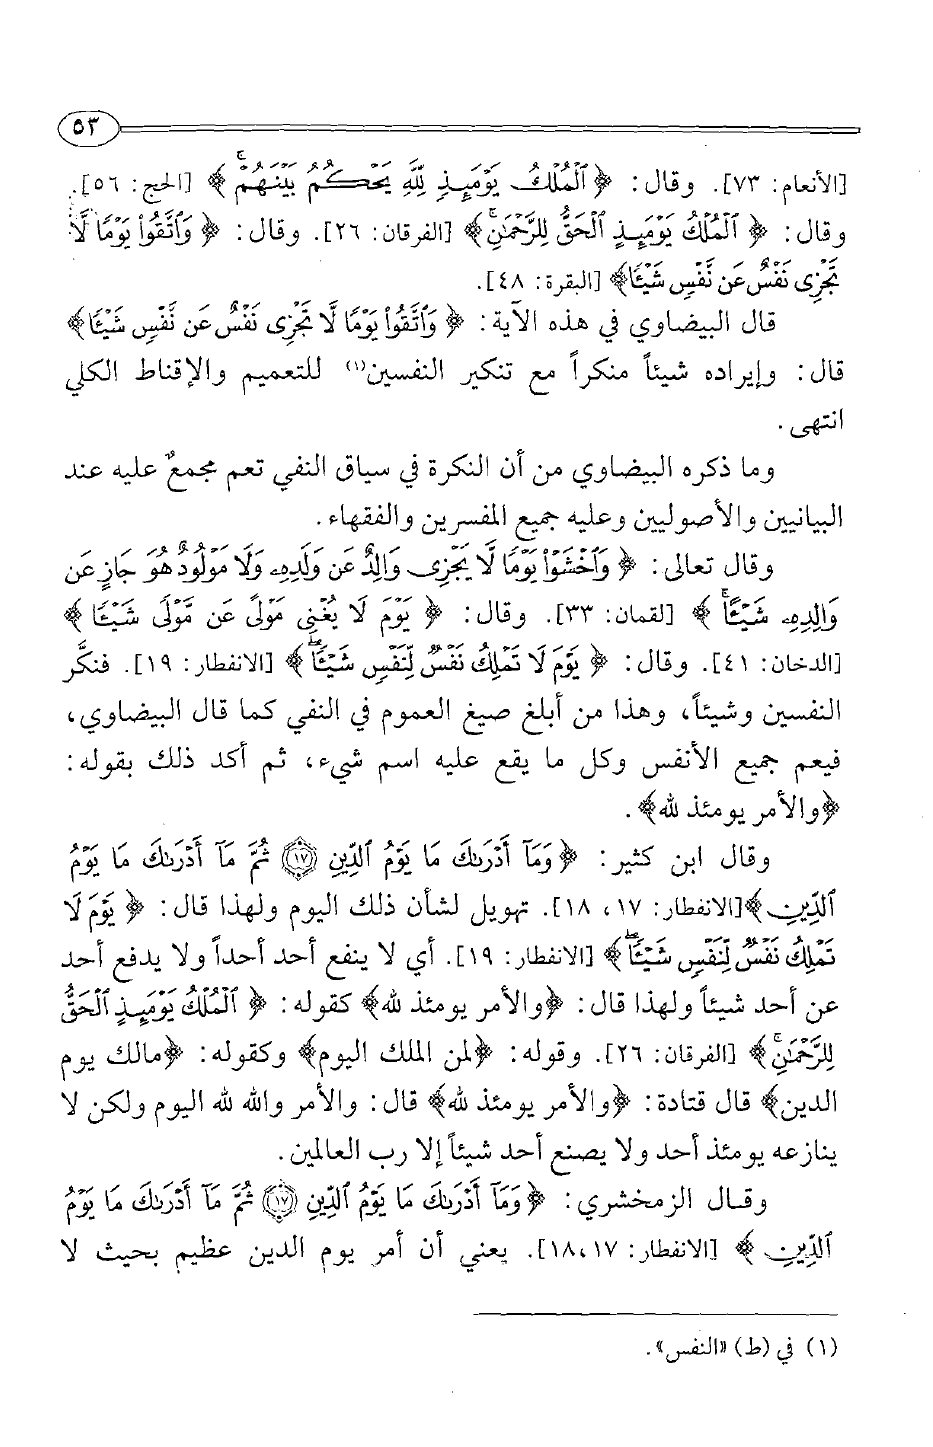 ٥٣
[الأنعام: ٧٣]. وقال: ﴿ ٱلْمُلْكُ يَوْمَئِذٍ لِلَّهِ يَحْكُمُ بَيْنَهُمْ ﴾ [الحج: ٥٦].
وقال: ﴿ ٱلْمُلْكُ يَوْمَئِذٍ ٱلْحَقُّ لِلرَّحْمَٰنِ ﴾ [الفرقان: ٢٦]. وقال: ﴿ وَٱتَّقُوا۟ يَوْمًا لَّا
تَجْزِى نَفْسٌ عَن نَّفْسٍ شَيْـًٔا﴾ [البقرة: ٤٨].
قال البيضاوي في هذه الآية: ﴿ وَٱتَّقُوا۟ يَوْمًا لَّا تَجْزِى نَفْسٌ عَن نَّفْسٍ شَيْـًٔا﴾
قال: وإيراده شيئاً منكراً مع تنكير النفسين(١) للتعميم والإقناط الكلي
انتهى.
وما ذكره البيضاوي من أن النكرة في سياق النفي تعم مجمعٌ عليه عند
البيانيين والأصوليين وعليه جميع المفسرين والفقهاء.
وقال تعالى: ﴿ وَٱخْشَوْا۟ يَوْمًا لَّا يَجْزِى وَالِدٌ عَن وَلَدِهِۦ وَلَا مَوْلُودٌ هُوَ جَازٍ عَن
وَالِدِهِۦ شَيْـًٔا ﴾ [لقمان: ٣٣]. وقال: ﴿ يَوْمَ لَا يُغْنِى مَوْلًى عَن مَّوْلًى شَيْـًٔا ﴾
[الدخان: ٤١]. وقال: ﴿ يَوْمَ لَا تَمْلِكُ نَفْسٌ لِّنَفْسٍ شَيْـًٔا ﴾ [الانفطار: ١٩]. فنكَّر
النفسين وشيئاً، وهذا من أبلغ صيغ العموم في النفي كما قال البيضاوي،
فيعم جميع الأنفس وكل ما يقع عليه اسم شيء، ثم أكد ذلك بقوله:
﴿والأمر يومئذ لله﴾.
وقال ابن كثير: ﴿ وَمَآ أَدْرَىٰكَ مَا يَوْمُ ٱلدِّينِ ١٧ ثُمَّ مَآ أَدْرَىٰكَ مَا يَوْمُ
ٱلدِّينِ ﴾[الانفطار: ١٧، ١٨]. تهويل لشأن ذلك اليوم ولهذا قال: ﴿ يَوْمَ لَا
تَمْلِكُ نَفْسٌ لِّنَفْسٍ شَيْـًٔا ﴾ [الانفطار: ١٩]. أي لا ينفع أحد أحداً ولا يدفع أحد
عن أحد شيئاً ولهذا قال: ﴿والأمر يومئذ لله﴾ كقوله: ﴿ ٱلْمُلْكُ يَوْمَئِذٍ ٱلْحَقُّ
لِلرَّحْمَٰنِ ﴾ [الفرقان: ٢٦]. وقوله: ﴿لمن الملك اليوم﴾ وكقوله: ﴿مالك يوم
الدين﴾ قال قتادة: ﴿والأمر يومئذ لله﴾ قال: والأمر والله لله اليوم ولكن لا
ينازعه يومئذ أحد ولا يصنع أحد شيئاً إلا رب العالمين.
وقال الزمخشري: ﴿ وَمَآ أَدْرَىٰكَ مَا يَوْمُ ٱلدِّينِ ١٧ ثُمَّ مَآ أَدْرَىٰكَ مَا يَوْمُ
ٱلدِّينِ ﴾ [الانفطار: ١٧، ١٨]. يعني أن أمر يوم الدين عظيم بحيث لا
(١) في (ط) «النفس».